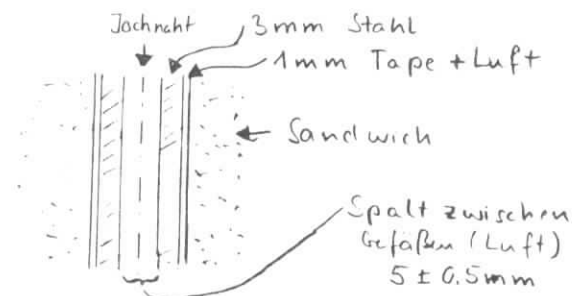 Jochnaht
3mm Stahl
1mm Tape + Luft
Sandwich
Spalt zwischen
Gefäßen (Luft)
5 ± 0.5mm